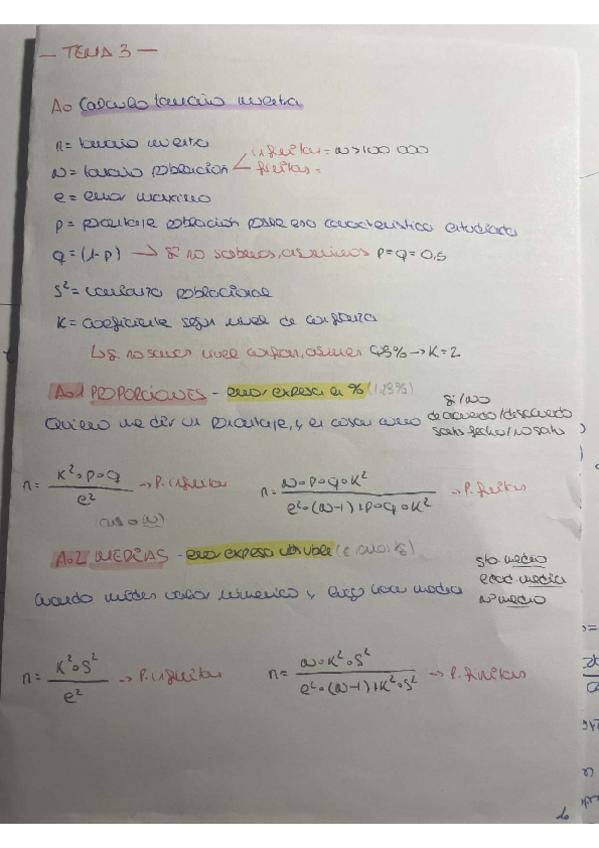 — TEMA 3 —
A. Calculo tamaño muestra
n = tamaño muestra
N = tamaño población < infinitas = N>100 000
finitas =
e = error maximo
p = porcentaje población posee esa caracteristica estudiada
q = (1-p) → Si no sabemos, asumimos p=q=0,5
S² = varianza poblacional
K = coeficiente según nivel de confianza
↳ si no sabes nivel confian, asumes 95% → K=2
A.1 PROPORCIONES - error expresa en %
Quiero medir un porcentaje, y en casos como
si/no
de acuerdo/desacuerdo
satisfecho/no satis
n = K²·p·q / e² → P. infinitas
n = N·p·q·K² / e²·(N-1)+p·q·K² → P. finitas
(N)
A.2 MEDIAS - error expresa variable
sto medio
edad media
nº medio
cuando mides valor numerico y luego haces media
n = K²·S² / e² → P. infinitas
n = N·K²·S² / e²·(N-1)+K²·S² → P. finitas